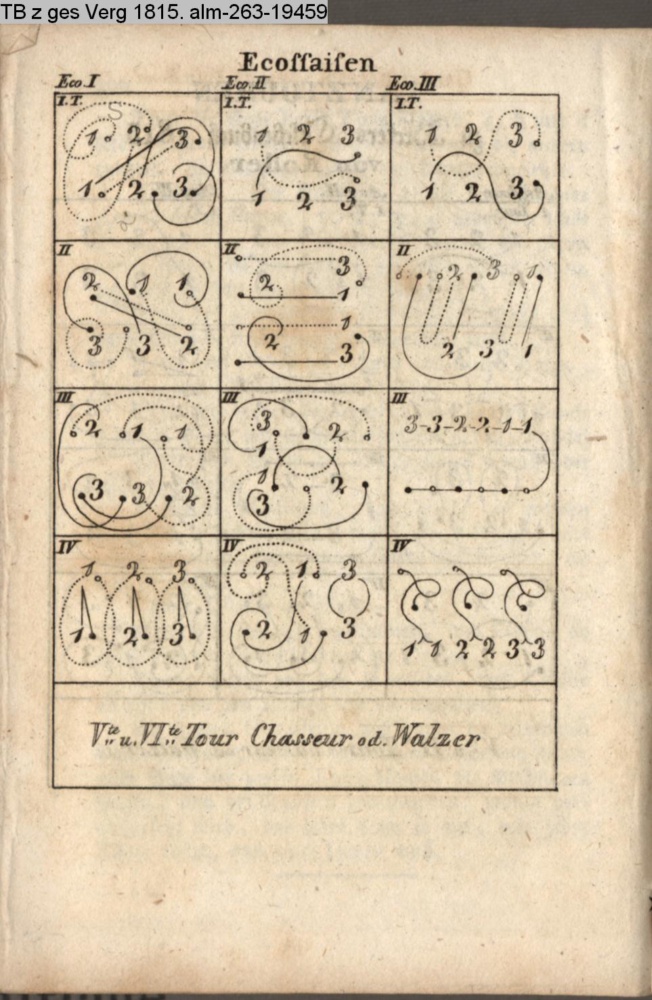 TB z ges Verg 1815. alm-263-19459
Ecoſſaiſen
Eco. I Eco. II Eco. III
I.T. I.T. I.T.
1 2 3 1 2 3 1 2 3
1 2 3 1 2 3 1 2 3
II II II
2 1 1 3 2 3
2 1
1
3 3 2 2 3 2 3 1
III III III
2 1 1 3 2 3-3-2-2-1-1
1
1
3 3 2 3 2
IV IV IV
1 2 3 2 1 3
1 2 3 2 1 3 1 1 2 2 3 3
Vte u. VIte Tour Chasseur od. Walzer